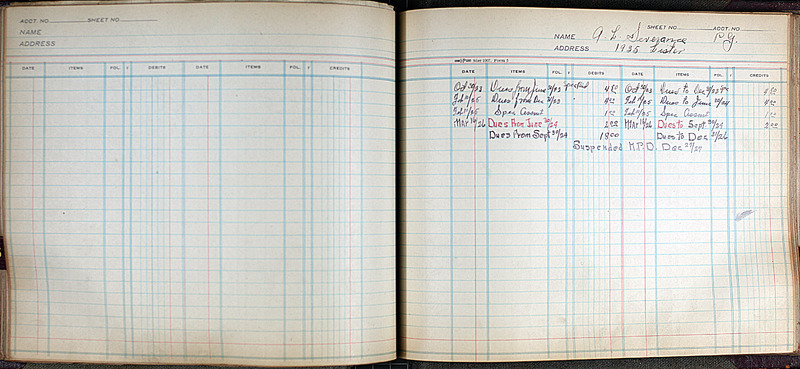 ACCT. NO. SHEET NO.
NAME
ADDRESS
DATE ITEMS FOL. DEBITS DATE ITEMS FOL. CREDITS
SHEET NO. ACCT. NO.
NAME A. L. Severance P.G.
ADDRESS 1935
DATE ITEMS FOL. DEBITS DATE ITEMS FOL. CREDITS
Oct 30/23 Dues from June 30/23 4 00 Oct 30/23 Dues to Dec 31/23 4 00
Feb 11/25 Dues from Dec 31/23 4 00 Feb 11/25 Dues to June 30/24 4 00
Feb 11/25 Spec Assmt 1 00 Feb 11/25 Spec Assmt 1 00
Mar 16/26 Dues From June 30/24 2 00 Mar 16/26 Dues to Sept 30/24 2 00
Dues From Sept 30/24 18.00 Dues to Dec 31/26
Suspended N.P.D. Dec 27/27